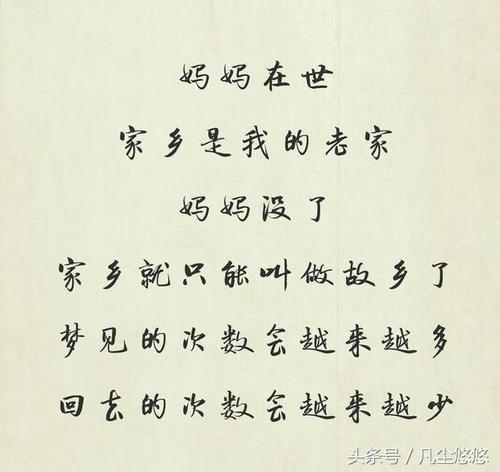 妈妈在世
家乡是我的老家
妈妈没了
家乡就只能叫做故乡了
梦见的次数会越来越多
回去的次数会越来越少
头条号／凡尘悠悠